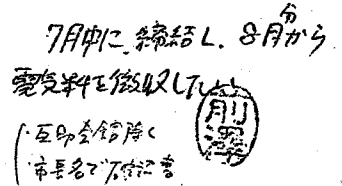 7月中に締結し、8月分から
電気料を徴収したい
前澤
互助会館除く
市長名で確認書